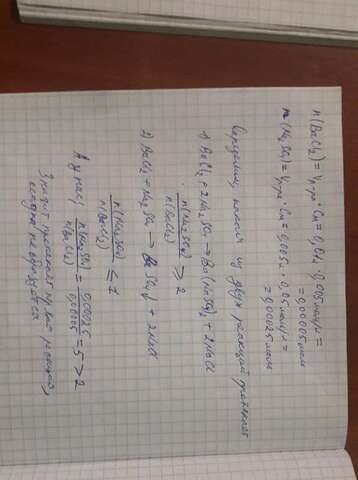 n(BaCl₂) = Vр-ра · Cм = 0,01л · 0,005 моль/л =
= 0,00005 моль
n(Na₂SO₄) = Vр-ра · Cм = 0,005л · 0,05 моль/л =
= 0,00025 моль
Определим, какая из двух реакций протекает
1) BaCl₂ + 2Na₂SO₄ → Ba(NaSO₄)₂ + 2NaCl
n(Na₂SO₄)/n(BaCl₂) ≥ 2
2) BaCl₂ + Na₂SO₄ → BaSO₄↓ + 2NaCl
n(Na₂SO₄)/n(BaCl₂) ≤ 1
А у нас, n(Na₂SO₄)/n(BaCl₂) = 0,00025/0,00005 = 5 > 2
Значит протекает первая реакция,
осадка не образуется